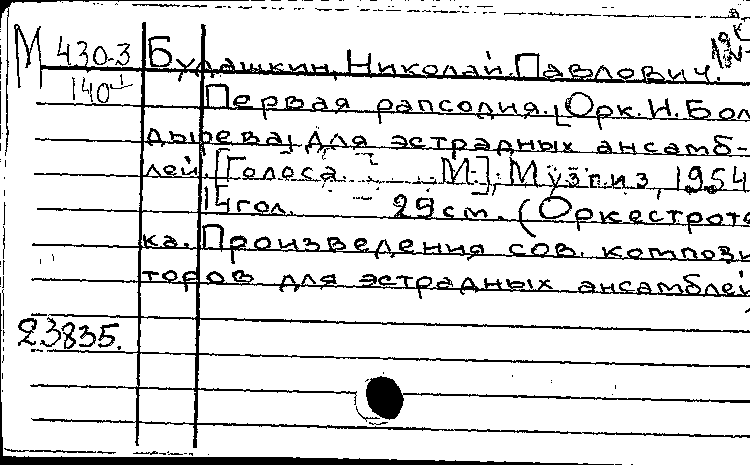 М 430-3 Будашкин, Николай Павлович.
140 Первая рапсодия. [Орк. И. Бол
дырева] Для эстрадных ансамб-
лей. [Голоса. М.], Музгиз, 1954
14 гол. 29 см. (Оркестроте
ка. Произведения сов. компози
торов для эстрадных ансамблей
23835.